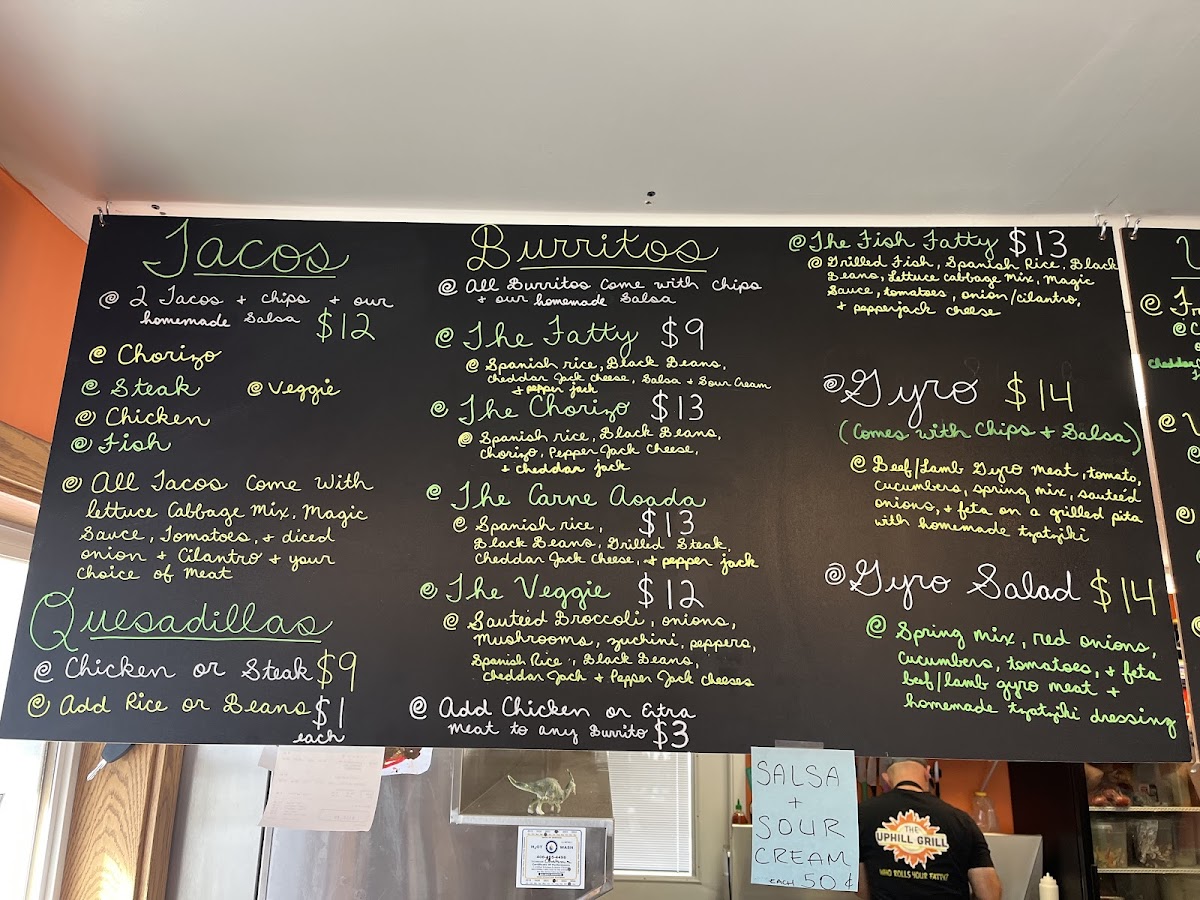 Tacos
@ 2 Tacos + chips + our
homemade Salsa $12
@ Chorizo
@ Steak
@ Veggie
@ Chicken
@ Fish
@ All Tacos Come With
lettuce Cabbage Mix, Magic
Sauce, Tomatoes, + diced
onion + Cilantro + your
choice of meat
Quesadillas
@ Chicken or Steak $9
@ Add Rice or Beans $1
each
Burritos
@ All Burritos Come with chips
+ our homemade Salsa
@ The Fatty $9
@ Spanish rice, Black Beans,
cheddar Jack cheese, Salsa + Sour Cream
+ pepper jack
@ The Chorizo $13
@ Spanish rice, Black Beans,
chorizo, Pepper Jack Cheese,
+ cheddar jack
@ The Carne Asada
$13
@ Spanish rice,
Black Beans, Grilled Steak,
Cheddar Jack Cheese, + pepper jack
@ The Veggie $12
@ Sauteed Broccoli, onions,
Mushrooms, zuchini, peppers,
Spanish Rice, Black Beans,
Cheddar Jack + Pepper Jack Cheeses
@ Add Chicken or Extra
meat to any Burrito $3
@ The Fish Fatty $13
@ Grilled Fish, Spanish Rice, Black
Beans, Lettuce Cabbage Mix, Magic
Sauce, tomatoes, onion/cilantro,
+ pepperjack cheese
@ Gyro $14
(Comes with Chips + Salsa)
@ Beef/Lamb Gyro meat, tomato,
cucumbers, spring mix, sautéed
onions, + feta on a grilled pita
with homemade tzatziki
@ Gyro Salad $14
@ Spring mix, red onions,
cucumbers, tomatoes, + feta
beef/lamb gyro meat +
homemade tzatziki dressing
SALSA
+
SOUR
CREAM
EACH 50¢
THE
UPHILL GRILL
WHO ROLLS YOUR FATTY?